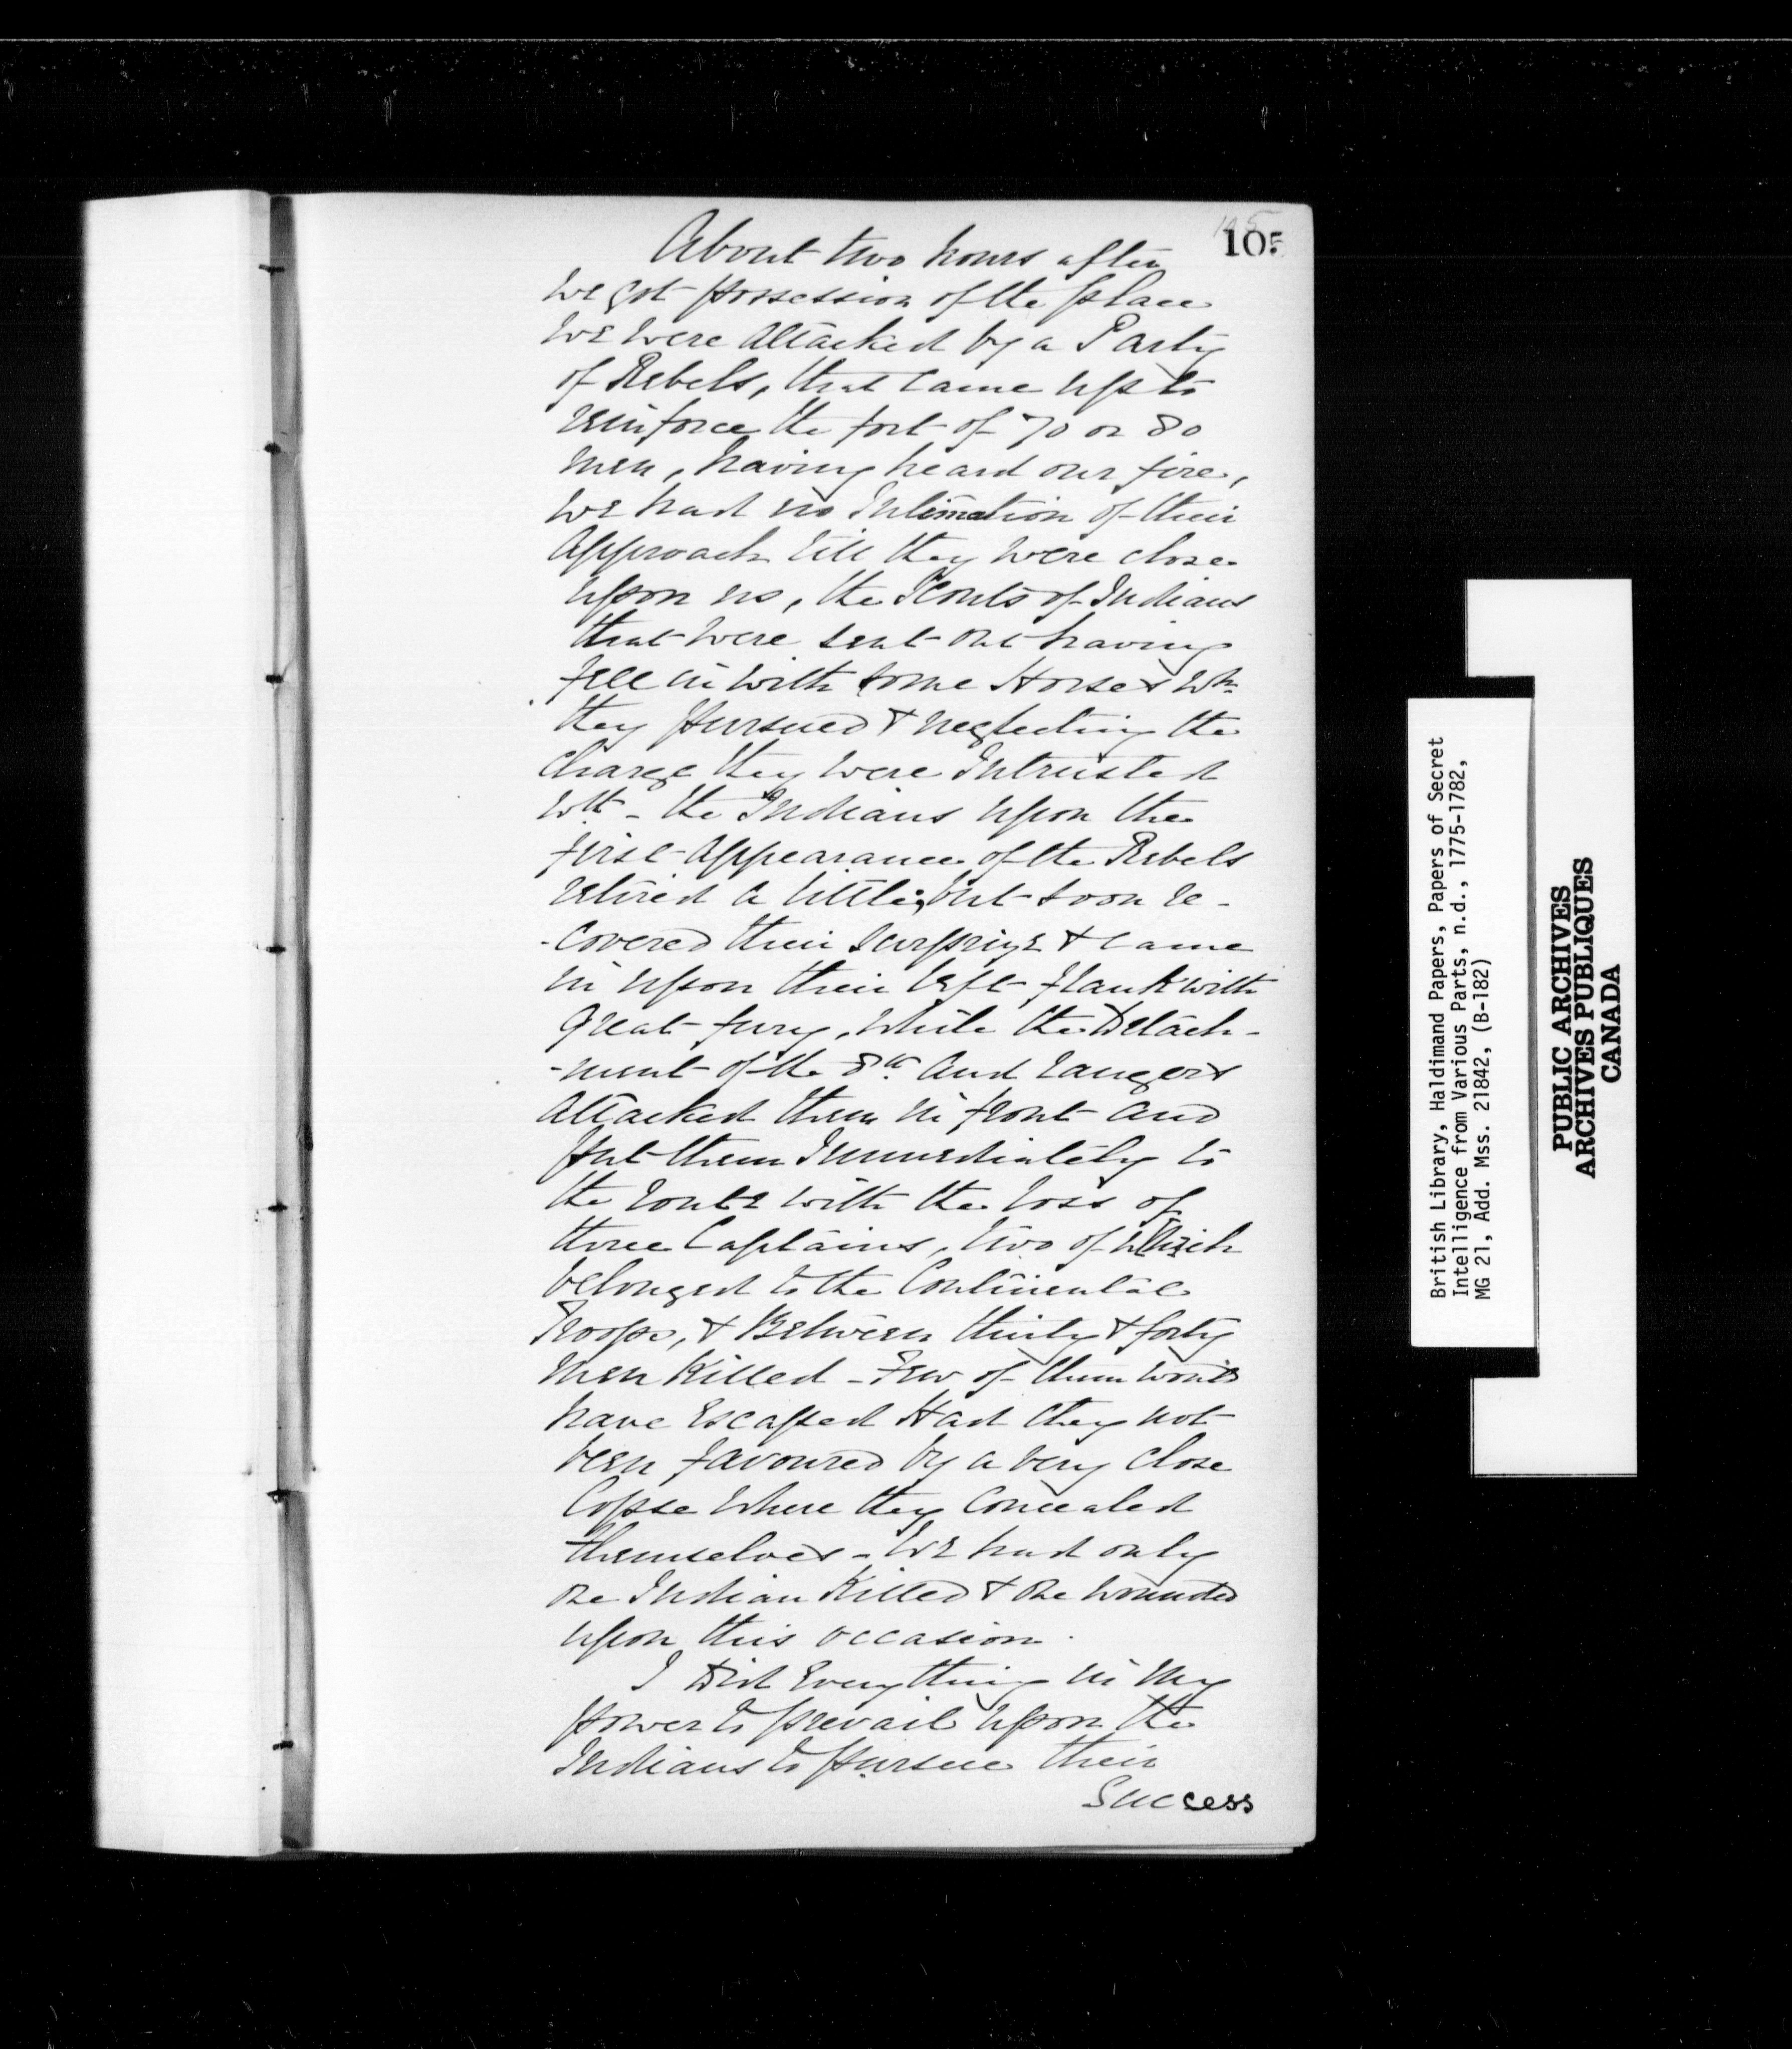 105
105
About two hours after
we got possession of the place
we were attacked by a Party
of Rebels, that came up to
reinforce the fort of 70 or 80
men, having heard our fire,
we had no Intimation of their
approach till they were close
upon us, the Scouts of Indians
that were sent out having
fell in with some Horses wh.
they pursued & neglecting the
charge they were Intrusted
wth - the Indians upon the
first appearance of the Rebels
retired a little, but soon re-
-covered their surprize & came
in upon their left flank with
great fury, while the Detach-
-ment of the 8th and rangers
attacked them in front and
put them Immediately to
the route with the loss of
three Captains, two of which
belonged to the Continental
Troops, & Between thirty & forty
men killed - Few of them would
have Escaped Had they not
been favoured by a very close
Copse where they concealed
themselves - we had only
one Indian Killed & one wounded
upon this occasion.
I Did Everything in my
power to prevail upon the
Indians to pursue their
Success
British Library, Haldimand Papers, Papers of Secret
Intelligence from Various Parts, n.d., 1775-1782,
MG 21, Add. Mss. 21842, (B-182)
PUBLIC ARCHIVES
ARCHIVES PUBLIQUES
CANADA